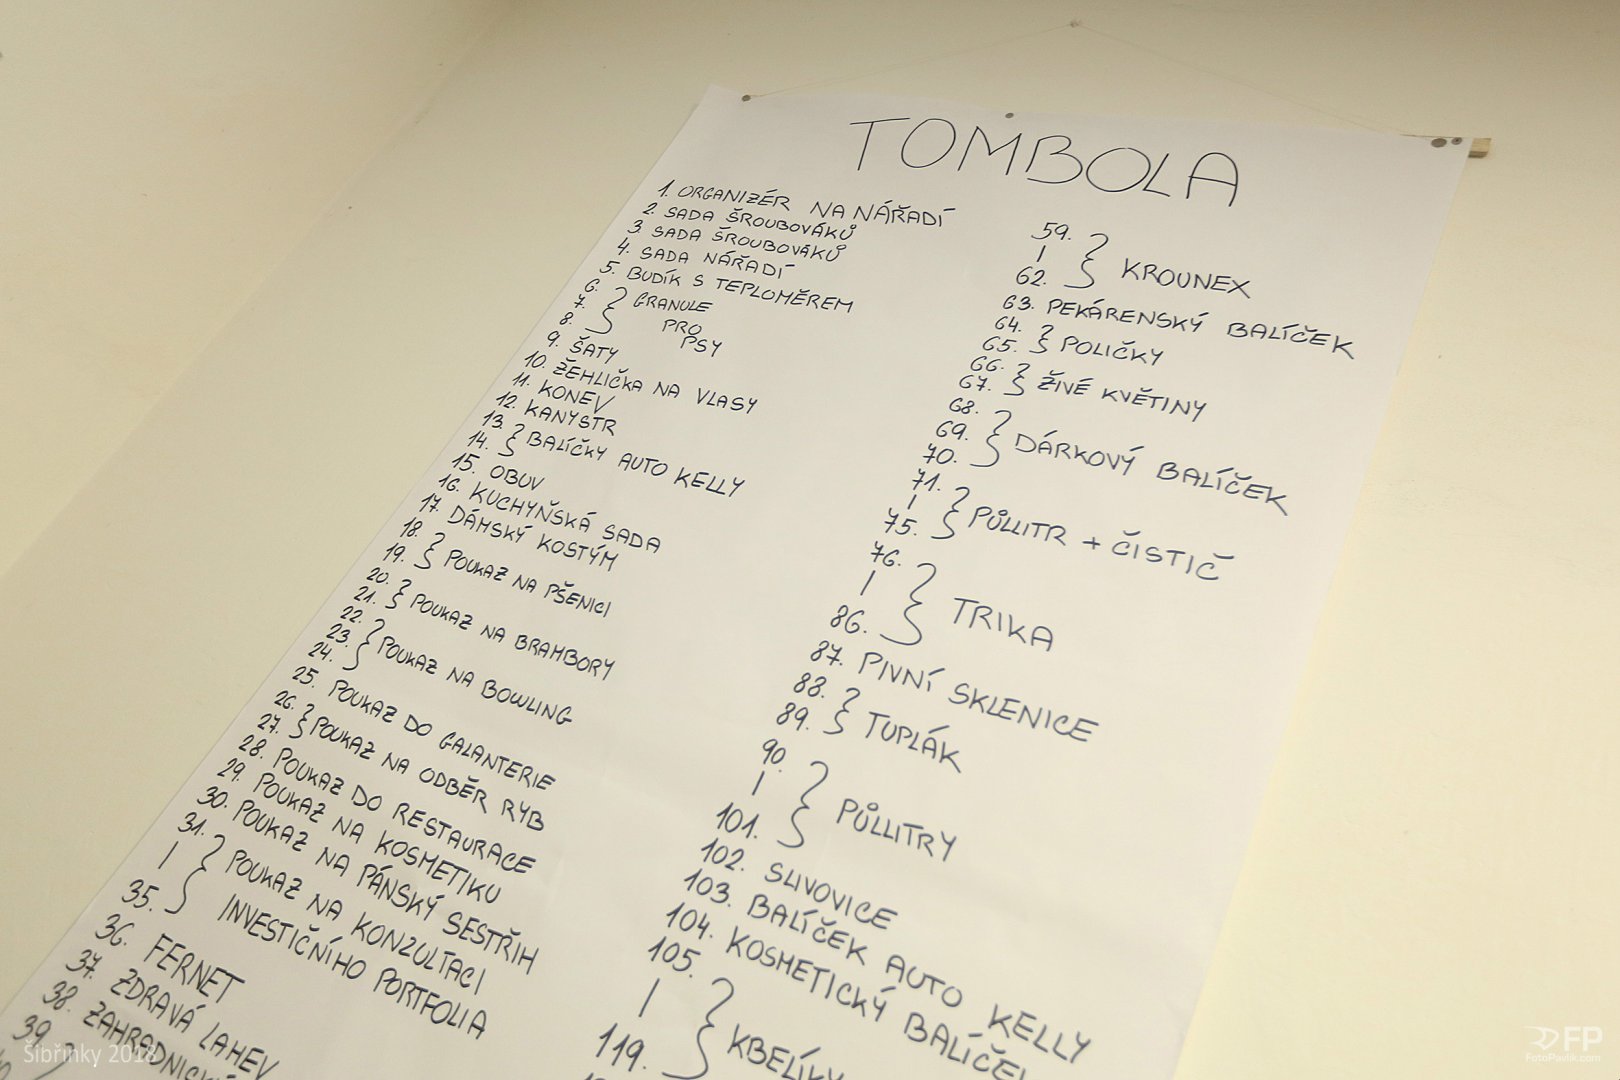 TOMBOLA
1. ORGANIZÉR NA NÁŘADÍ
2. SADA ŠROUBOVÁKŮ
3. SADA ŠROUBOVÁKŮ
4. SADA NÁŘADÍ
5. BUDÍK S TEPLOMĚREM
6. GRANULE
7. PRO
8. PSY
9. ŠATY
10. ŽEHLIČKA NA VLASY
11. KONEV
12. KANYSTR
13.
14. BALÍČKY AUTO KELLY
15. OBUV
16. KUCHYŇSKÁ SADA
17. DÁMSKÝ KOSTÝM
18.
19. POUKAZ NA PŠENICI
20.
21. POUKAZ NA BRAMBORY
22.
23. POUKAZ NA BOWLING
24.
25. POUKAZ DO GALANTERIE
26.
27. POUKAZ NA ODBĚR RYB
28. POUKAZ DO RESTAURACE
29. POUKAZ NA KOSMETIKU
30. POUKAZ NA PÁNSKÝ SESTŘIH
31. POUKAZ NA KONZULTACI
|
35. INVESTIČNÍHO PORTFOLIA
36. FERNET
37. ZDRAVÁ LAHEV
38.
39.
59.
|
62. KROUNEX
63. PEKÁRENSKÝ BALÍČEK
64.
65. POLIČKY
66.
67. ŽIVÉ KVĚTINY
68.
69. DÁRKOVÝ BALÍČEK
70.
71.
|
75. PŮLLITR + ČISTIČ
76.
|
86. TRIKA
87. PIVNÍ SKLENICE
88.
89. TUPLÁK
90.
|
101. PŮLLITRY
102. SLIVOVICE
103. BALÍČEK AUTO KELLY
104. KOSMETICKÝ BALÍČEK
105.
|
119. KBELÍKY
Šibřinky 2018
FP
FotoPavlik.com